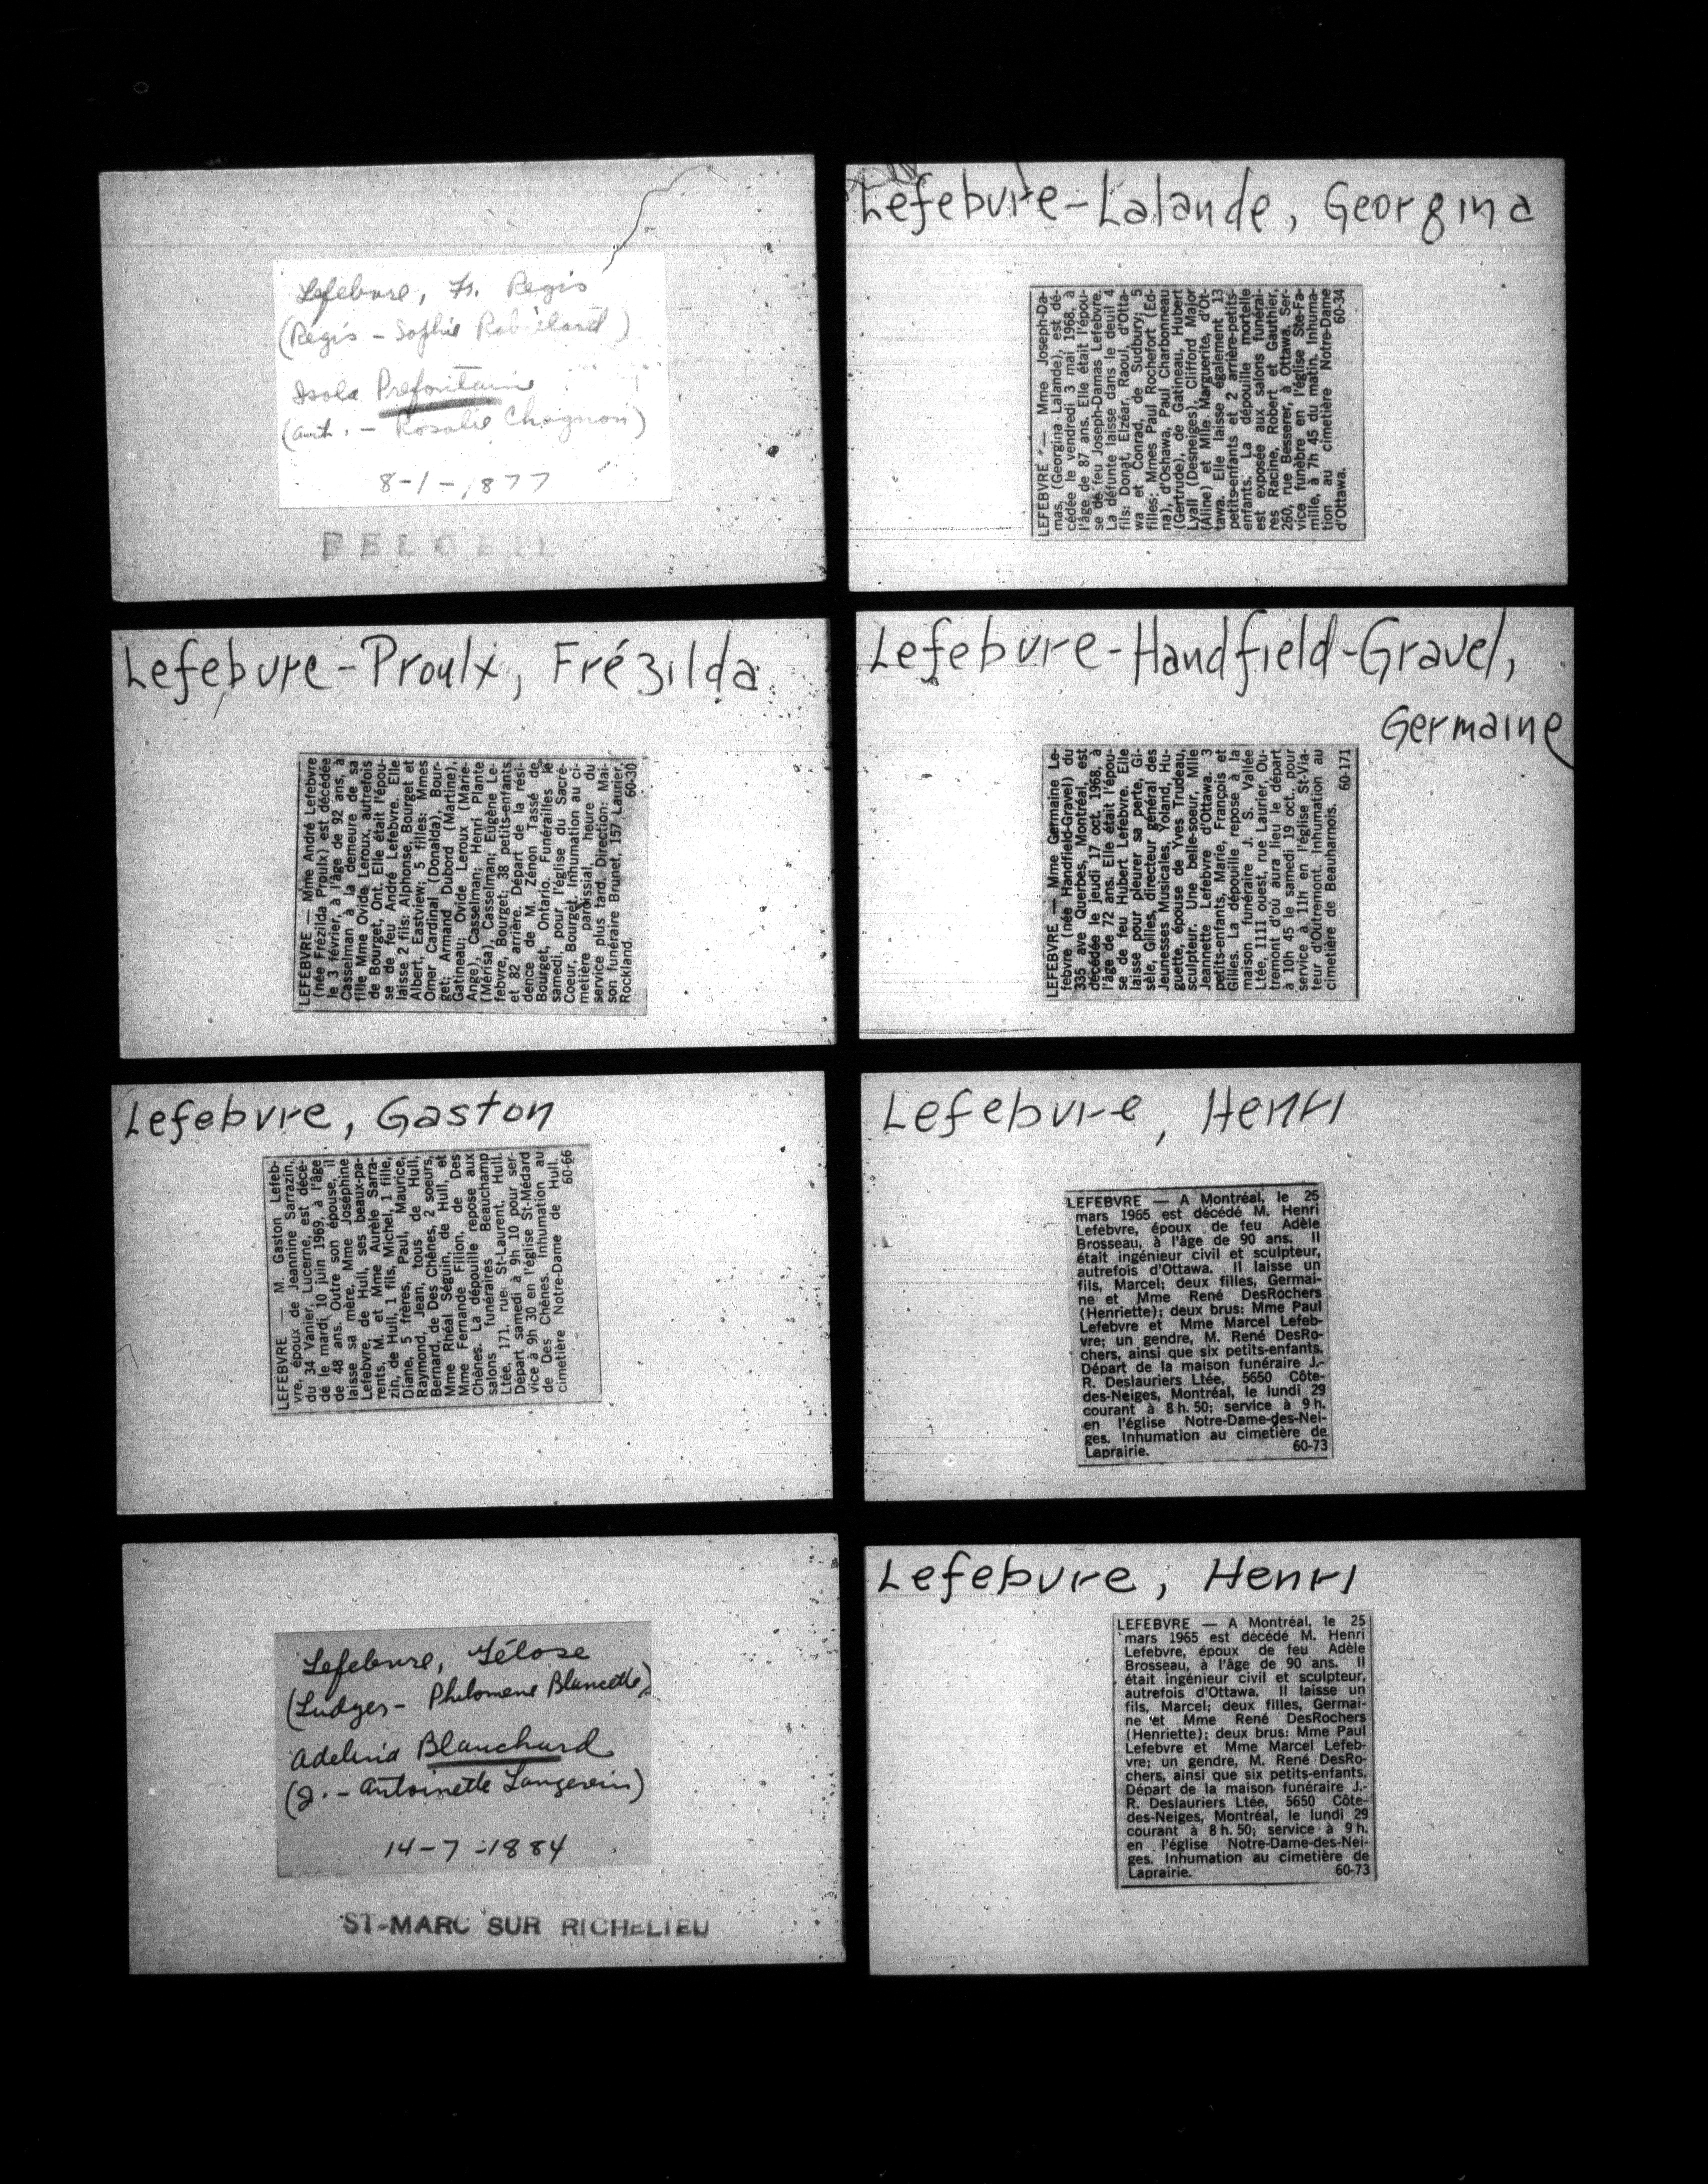 Lefebvre, Fr. Regis
(Regis - Sophie Robillard)
Isola Prefontaine
(Ant. - Rosalie Chagnon)
8-1-1877
BELOEIL
Lefebvre-Lalande, Georgina
LEFEBVRE — Mme Joseph-Da-
mas, (Georgina Lalande), est dé-
cédée le vendredi 3 mai 1968, à
l'âge de 87 ans. Elle était l'épou-
se de feu Joseph-Damas Lefebvre.
La défunte laisse dans le deuil 4
fils: Donat, Elzéar, Raoul, d'Otta-
wa et Conrad, de Sudbury; 5
filles: Mmes Paul Rochefort (Ed-
na), d'Oshawa, Paul Charbonneau
(Gertrude), de Gatineau, Hubert
Lyall (Desneiges), Clifford Major
(Aline) et Mlle Marguerite, d'Ot-
tawa. Elle laisse également 13
petits-enfants et 2 arrière-petits-
enfants. La dépouille mortelle
est exposée aux salons funérai-
res Racine, Robert et Gauthier,
260, rue Besserer, à Ottawa. Ser-
vice funèbre en l'église Ste-Fa-
mille, à 7h 45 du matin. Inhuma-
tion au cimetière Notre-Dame
d'Ottawa. 60-34
Lefebvre-Proulx, Frézilda
LEFEBVRE — Mme André Lefebvre
(née Frézilda Proulx) est décédée
le 3 février, à l'âge de 92 ans, à
Casselman à la demeure de sa
fille Mme Ovide Leroux, autrefois
de Bourget, Ont. Elle était l'épou-
se de feu André Lefebvre. Elle
laisse 2 fils: Alphonse, Bourget et
Albert, Eastview; 5 filles: Mmes
Omer Cardinal (Donalda), Bour-
get; Armand Dubord (Martine),
Gatineau; Ovide Leroux (Marie-
Ange), Casselman; Henri Plante
(Mérisa), Casselman; Eugène Le-
febvre, Bourget; 38 petits-enfants
et 82 arrière. Départ de la rési-
dence de M. Zénon Tassé de
Bourget, Ontario. Funérailles le
samedi, pour l'église du Sacré-
Coeur, Bourget. Inhumation au ci-
metière paroissial heure du
service plus tard. Direction: Mai-
son funéraire Brunet, 157 Laurier,
Rockland. 60-30
Lefebvre-Handfield-Gravel,
Germaine
LEFEBVRE — Mme Germaine Le-
febvre (née Handfield-Gravel) du
335 ave Querbes, Montréal, est
décédée le jeudi 17 oct. 1968, à
l'âge de 72 ans. Elle était l'épou-
se de feu Hubert Lefebvre. Elle
laisse pour pleurer sa perte, Gi-
sèle, Gilles, directeur général des
Jeunesses Musicales, Yoland, Hu-
guette, épouse de Yves Trudeau,
sculpteur. Une belle-soeur, Mlle
Jeannette Lefebvre d'Ottawa. 3
petits-enfants, Marie, François et
Gilles. La dépouille repose à la
maison funéraire J. S. Vallée
Ltée, 1111 ouest, rue Laurier, Ou-
tremont d'où aura lieu le départ
à 10h 45 le samedi 19 oct., pour
service à 11h en l'église St-Via-
teur d'Outremont. Inhumation au
cimetière de Beauharnois.
60-171
Lefebvre, Gaston
LEFEBVRE — M. Gaston Lefeb-
vre, époux de Jeannine Sarrazin,
du 34 Vanier, Lucerne, est décé-
dé le mardi 10 juin 1969, à l'âge
de 48 ans. Outre son épouse, il
laisse sa mère, Mme Joséphine
Lefebvre, de Hull, ses beaux-pa-
rents, M. et Mme Aurèle Sarra-
zin, de Hull, 1 fils, Michel, 1 fille,
Diane, 5 frères, Paul, Maurice,
Raymond, Jean, tous de Hull,
Bernard, de Des Chênes, 2 soeurs,
Mme Rhéal Séguin, de Hull, et
Mme Fernande Filion, de Des
Chênes. La dépouille repose aux
salons funéraires Beauchamp
Ltée, 171, rue St-Laurent, Hull.
Départ samedi à 9h 10 pour ser-
vice à 9h 30 en l'église St-Médard
de Des Chênes. Inhumation au
cimetière Notre-Dame de Hull.
60-66
Lefebvre, Henri
LEFEBVRE — A Montréal, le 25
mars 1965 est décédé M. Henri
Lefebvre, époux de feu Adèle
Brosseau, à l'âge de 90 ans. Il
était ingénieur civil et sculpteur,
autrefois d'Ottawa. Il laisse un
fils, Marcel; deux filles, Germai-
ne et Mme René DesRochers
(Henriette); deux brus: Mme Paul
Lefebvre et Mme Marcel Lefeb-
vre; un gendre, M. René DesRo-
chers, ainsi que six petits-enfants.
Départ de la maison funéraire J.-
R. Deslauriers Ltée, 5650 Côte-
des-Neiges, Montréal, le lundi 29
courant à 8 h. 50; service à 9 h.
en l'église Notre-Dame-des-Nei-
ges. Inhumation au cimetière de
Laprairie. 60-73
Lefebvre, Télose
(Ludger - Philomene Blanchette)
Adelina Blanchard
(J. - Antoinette Langevin)
14-7-1884
ST-MARC SUR RICHELIEU
Lefebvre, Henri
LEFEBVRE — A Montréal, le 25
mars 1965 est décédé M. Henri
Lefebvre, époux de feu Adèle
Brosseau, à l'âge de 90 ans. Il
était ingénieur civil et sculpteur,
autrefois d'Ottawa. Il laisse un
fils, Marcel; deux filles, Germai-
ne et Mme René DesRochers
(Henriette); deux brus: Mme Paul
Lefebvre et Mme Marcel Lefeb-
vre; un gendre, M. René DesRo-
chers, ainsi que six petits-enfants.
Départ de la maison funéraire J.-
R. Deslauriers Ltée, 5650 Côte-
des-Neiges, Montréal, le lundi 29
courant à 8 h. 50; service à 9 h.
en l'église Notre-Dame-des-Nei-
ges. Inhumation au cimetière de
Laprairie. 60-73